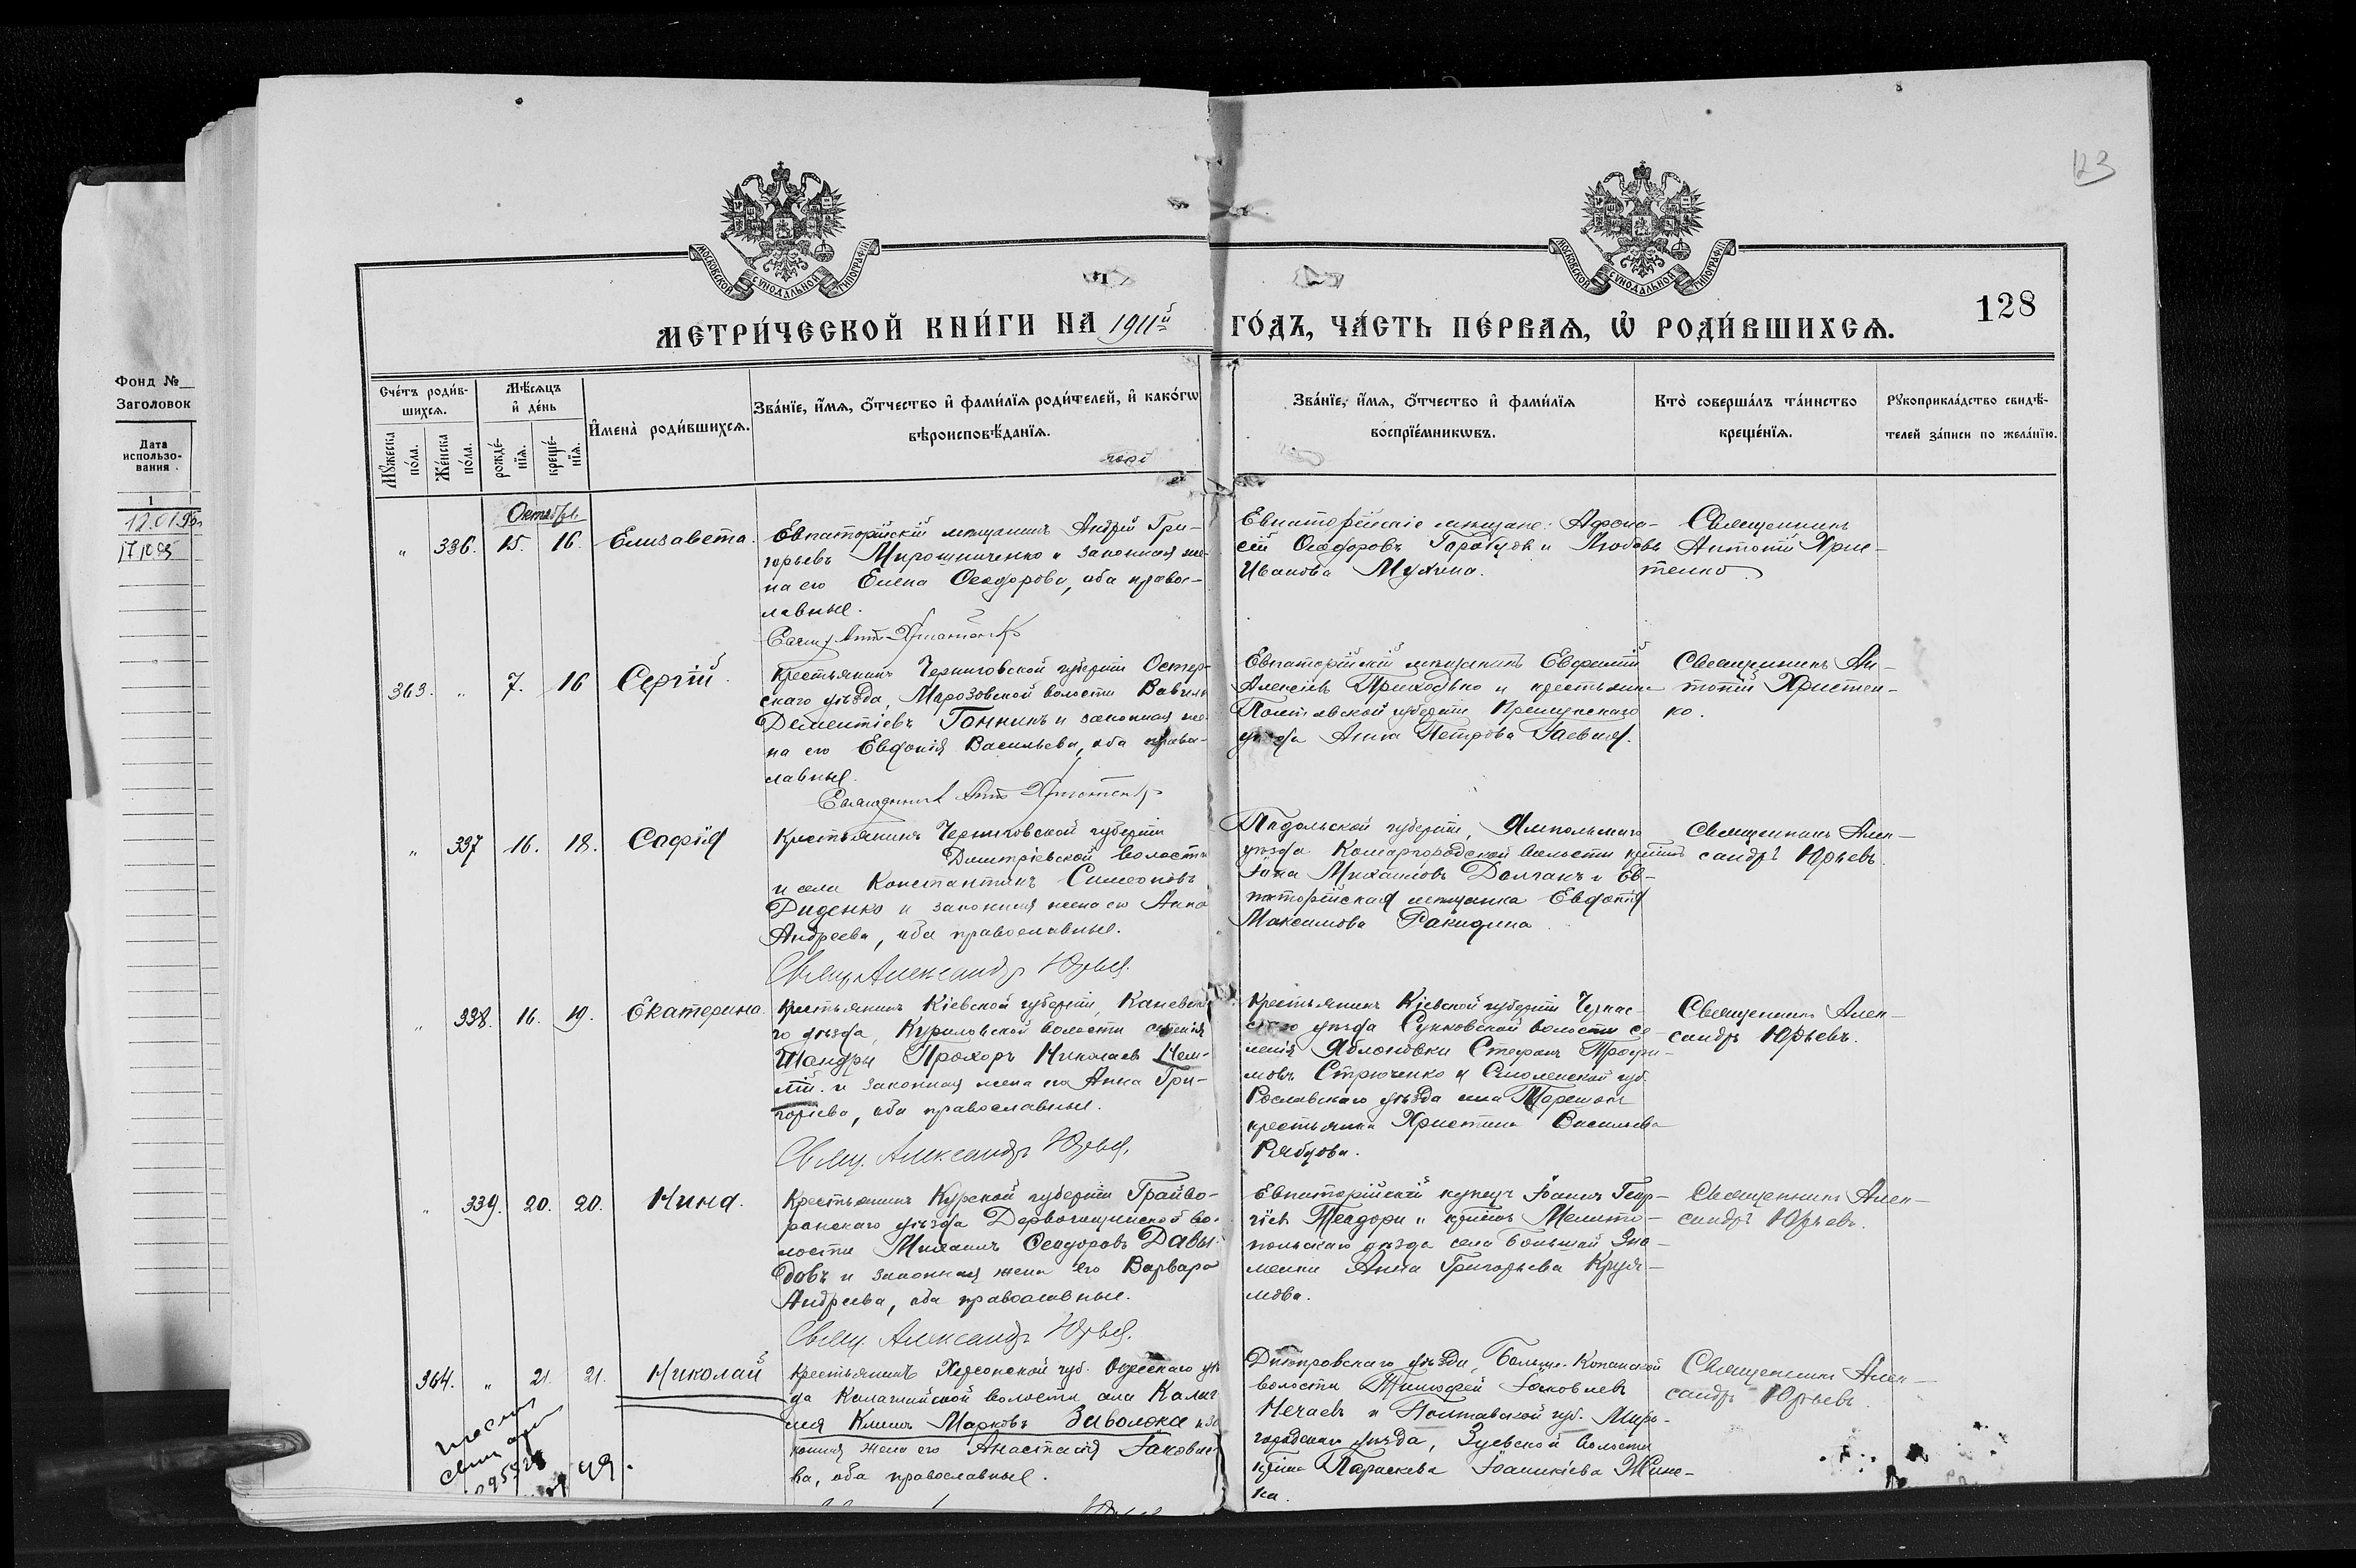 123
128
МОСКОВСКОЙ СУНОДАЛЬНОЙ ТИПОГРАФІИ
МОСКОВСКОЙ СУНОДАЛЬНОЙ ТИПОГРАФІИ
МЕТРИ́ЧЕСКОЙ КНИ́ГИ НА 1911й ГО́ДЪ, ЧА́СТЬ ПЕ́РВАѦ, Ѡ҆ РОДИ́ВШИХСѦ.
Фонд №
Заголовок
Дата
использо-
вания
1
Сче́тъ роди́в-
шихсѧ.
Мꙋ́жеска по́ла.
Же́нска по́ла.
Мѣ́сѧцъ
и҆ де́нь
рожде́-нїѧ.
креще́-нїѧ.
И҆мена̀ роди́вшихсѧ.
Зва́нїе, и҆́мѧ, ѻ҆́тчество и҆ фами́лїѧ роди́телей, и҆ како́гѡ
вѣроисповѣ́данїѧ.
Зва́нїе, и҆́мѧ, ѻ҆́тчество и҆ фами́лїѧ
воспрїе́мникѡвъ.
Кто̀ соверша́лъ та́инство
креще́нїѧ.
Рꙋкоприкла́дство свидѣ́-
телей за́писи по жела́нїю.
Октября
„ 336. 15. 16. Елизавета.
Евпаторійскій мѣщанинъ Андрей Гри-
горьевъ Мирошниченко и законная же-
на его Елена Ѳеодорова, оба правос-
лавные.
Евпаторійскіе мѣщане: Афана-
сій Ѳеодоровъ и Любовь
Иванова Мухина.
Священникъ
Антоній Хрис-
тенко.
363. „ 7. 16 Сергій.
Крестьянинъ Черниговской губерніи Остер-
скаго уѣзда, Марозовской волости Вавилъ
Дементіевъ Гонникъ и законная же-
на его Евдокія Васильева, оба право-
славные.
Евпаторійскій мѣщанинъ Евфимій
Алексіевъ Приходько и крестьянка
Полтавской губерніи
уѣзда Анна Петрова
Священникъ Ан-
тоній Христен-
ко.
„ 337 16. 18. Софія
Крестьянинъ Черниговской губерніи
Димитріевской волости
и села Константинъ Симеоновъ
Диденко и законная жена его Анна
Андреева, оба православные.
Свящ. Александръ Юрьевъ.
Подольской губерніи, Ямпольскаго
уѣзда Комаргородской волости
Михаиловъ Долганъ и Ев-
паторійская мѣщанка Евдокія
Максимова Ракидина
Священникъ Алек-
сандръ Юрьевъ.
„ 338. 16. 19. Екатерина.
Крестьянинъ Кіевской губерніи, Каневска-
го уѣзда, Куриловской волости селенія
Шандры Прохоръ Николаевъ Нем-
лій и законная жена его Анна Гри-
горіева, оба православные.
Свящ. Александръ Юрьевъ.
Крестьянинъ Кіевской губерніи Черкас-
скаго уѣзда Сунковской волости се-
ленія Яблоновки Стефанъ Трофи-
мовъ Стрюченко и Смоленской губ.
Рославскаго уѣзда села
крестьянка Христина Васильева
Рябцова.
Священникъ Алек-
сандръ Юрьевъ.
„ 339. 20. 20. Нина.
Крестьянинъ Курской губерніи Грайво-
ронскаго уѣзда во-
лости Михаилъ Ѳеодоровъ Давы-
довъ и законная жена его Варвара
Андреева, оба православные.
Свящ. Александръ Юрьевъ.
Евпаторійскій купецъ Іоаннъ Геор-
гіевъ Теодори и Мелито-
польскаго уѣзда села Большой Зна-
менки Анна Григорьева Кругл-
мова.
Священникъ Алек-
сандръ Юрьевъ.
364. „ 21. 21. Николай
Крестьянинъ Херсонской губ. Одесскаго уѣз-
да волости села
Климъ Марковъ Заволока и за-
конная жена его Анастасія Іаковле-
ва, оба православные.
Днѣпровскаго уѣзда, Больше-Копанской
волости Тимофей Іаковлевъ
Нечаевъ и Полтавской губ. Мирго-
родскаго уѣзда, Зуевской волости
Параскева Іоанникіева
Священникъ Алек-
сандръ Юрьевъ.